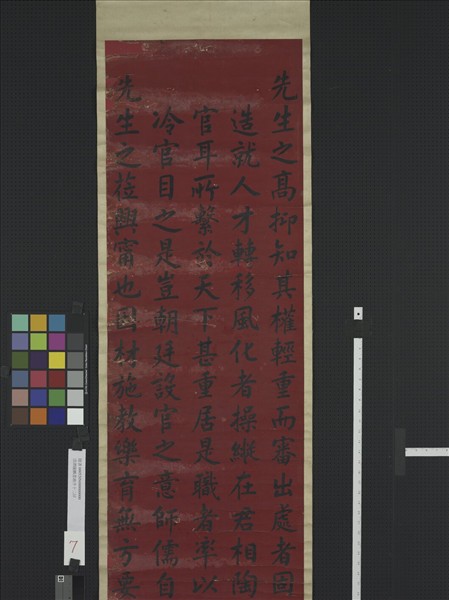 先生之高抑知真權輕重而審出處者固
造就人才轉移風化者操縱在君相陶
官耳所繫於天下甚重居是職者率以
冷官目之是豈朝廷設官之意師儒自
先生之蒞興甯也因材施教樂育無方要
7